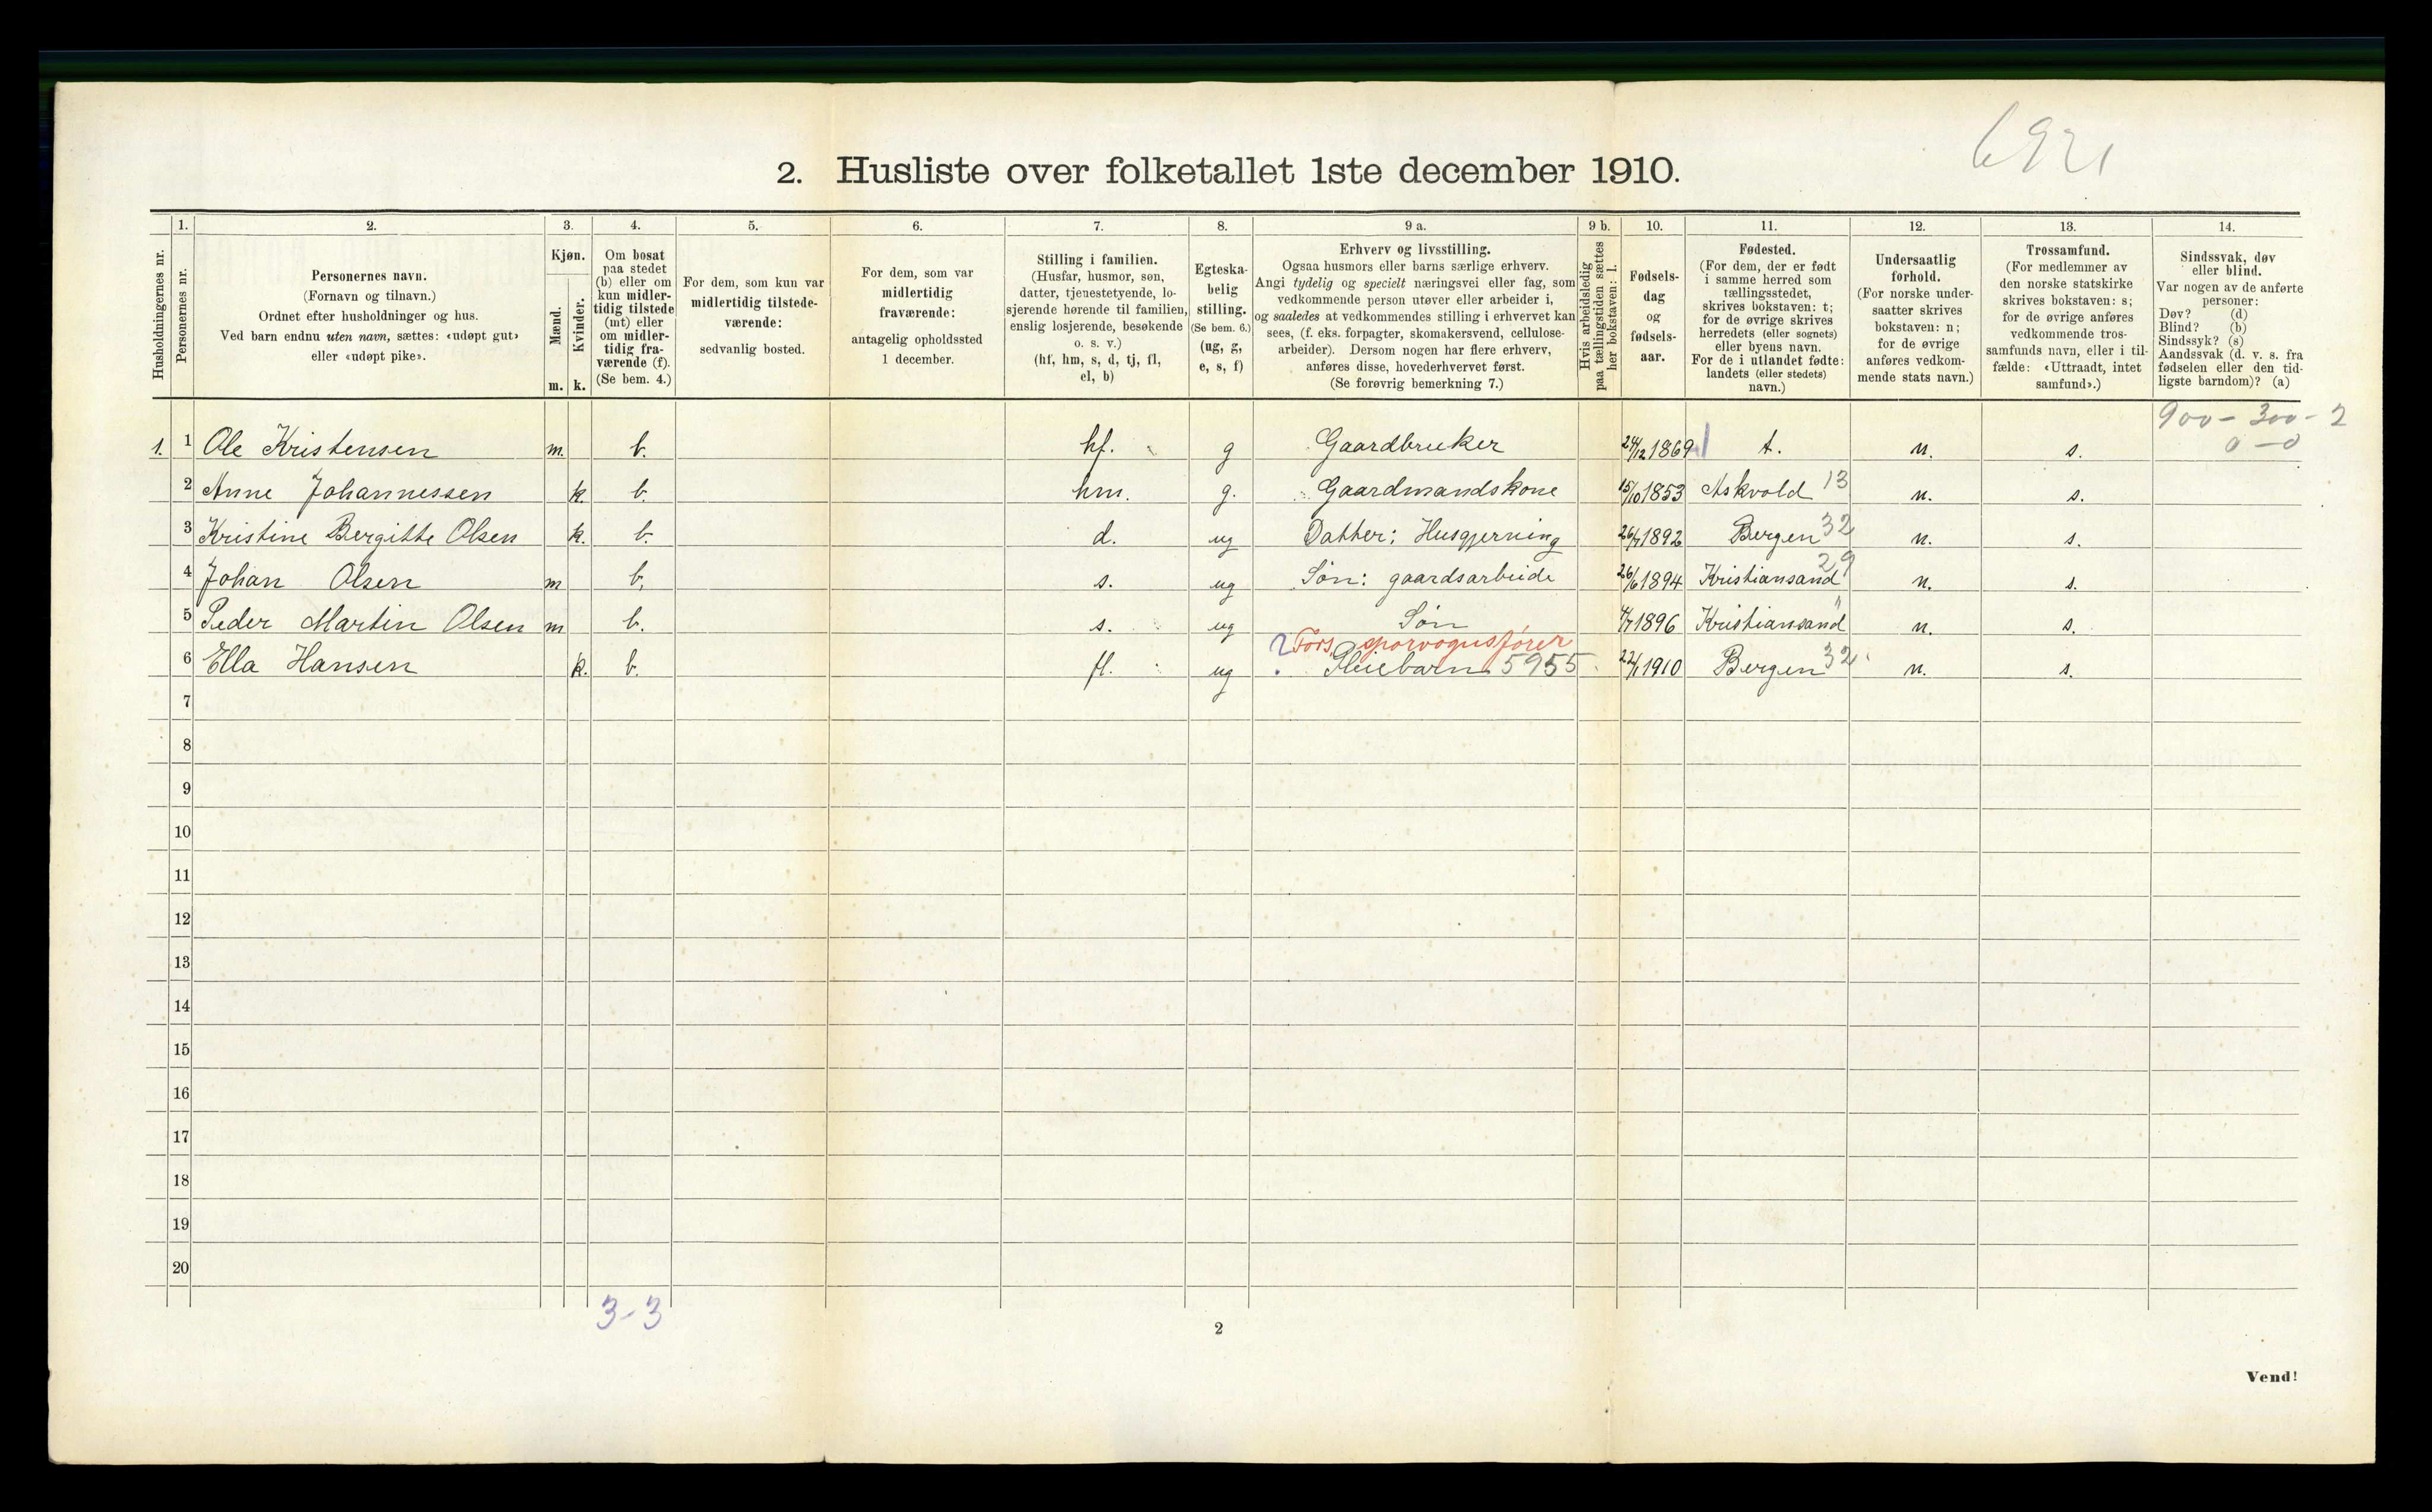 6921
2. Husliste over folketallet 1ste december 1910.
Husholdningernes nr.
1.
Personernes nr.
2.
Personernes navn.
(Fornavn og tilnavn.)
Ordnet efter husholdninger og hus.
Ved barn endnu uten navn, sættes: «udøpt gut»
eller «udøpt pike».
3.
Kjøn.
Mænd.
Kvinder.
m. k.
4.
Om bosat
paa stedet
(b) eller om
kun midler-
tidig tilstede
(mt) eller
om midler-
tidig fra-
værende (f).
(Se bem. 4.)
5.
For dem, som kun var
midlertidig tilstede-
værende:
sedvanlig bosted.
6.
For dem, som var
midlertidig
fraværende:
antagelig opholdssted
1 december.
7.
Stilling i familien.
(Husfar, husmor, søn,
datter, tjenestetyende, lo-
sjerende hørende til familien,
enslig losjerende, besøkende
o. s. v.)
(hf, hm, s, d, tj, fl,
el, b)
8.
Egteska-
belig
stilling.
(Se bem. 6.)
(ug, g,
e, s, f)
9 a.
Erhverv og livsstilling.
Ogsaa husmors eller barns særlige erhverv.
Angi tydelig og specielt næringsvei eller fag, som
vedkommende person utøver eller arbeider i,
og saaledes at vedkommendes stilling i erhvervet kan
sees, (f. eks. forpagter, skomakersvend, cellulose-
arbeider). Dersom nogen har flere erhverv,
anføres disse, hovederhvervet først.
(Se forøvrig bemerkning 7.)
9 b.
Hvis arbeidsledig
paa tællingstiden sættes
her bokstaven: l.
10.
Fødsels-
dag
og
fødsels-
aar.
11.
Fødested.
(For dem, der er født
i samme herred som
tællingsstedet,
skrives bokstaven: t;
for de øvrige skrives
herredets (eller sognets)
eller byens navn.
For de i utlandet fødte:
landets (eller stedets)
navn.)
12.
Undersaatlig
forhold.
(For norske under-
saatter skrives
bokstaven: n;
for de øvrige
anføres vedkom-
mende stats navn.)
13.
Trossamfund.
(For medlemmer av
den norske statskirke
skrives bokstaven: s;
for de øvrige anføres
vedkommende tros-
samfunds navn, eller i til-
fælde: «Uttraadt, intet
samfund».)
14.
Sindssvak, døv
eller blind.
Var nogen av de anførte
personer:
Døv? (d)
Blind? (b)
Sindssyk? (s)
Aandssvak (d. v. s. fra
fødselen eller den tid-
ligste barndom)? (a)
900 - 300 - 2
0 - 0
1. 1 Ole Kristensen m. b. hf. g Gaardbruker 24/12 1869 t. n. s.
2 Anne Johannessen k. b. hm. g. Gaardmandskone 15/10 1853 Askvold 13 n. s.
3 Kristine Bergitte Olsen k. b. d. ug Datter: Husgjerning 26/7 1892 Bergen 32 n. s.
4 Johan Olsen m b. s. ug Søn: gaardsarbeide 26/6 1894 Kristiansand 29 n. s.
5 Peder Martin Olsen m b. s. ug Søn 4/7 1896 Kristiansand " n. s.
? Fors. sporvognsfører
6 Ella Hansen k. b. fl. ug Pleiebarn 5955 22/1 1910 Bergen 32 n. s.
7
8
9
10
11
12
13
14
15
16
17
18
19
20
3-3
2
Vend!